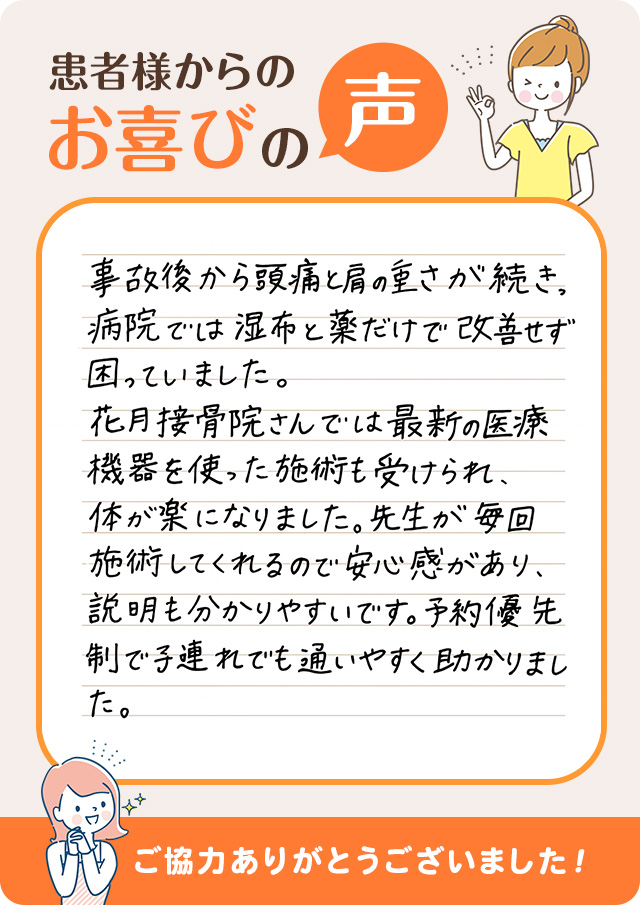 患者様からの
お喜びの
声
事故後から頭痛と肩の重さが続き、
病院では湿布と薬だけで改善せず
困っていました。
花月接骨院さんでは最新の医療
機器を使った施術も受けられ、
体が楽になりました。先生が毎回
施術してくれるので安心感があり、
説明も分かりやすいです。予約優先
制で子連れでも通いやすく助かりまし
た。
ご協力ありがとうございました！